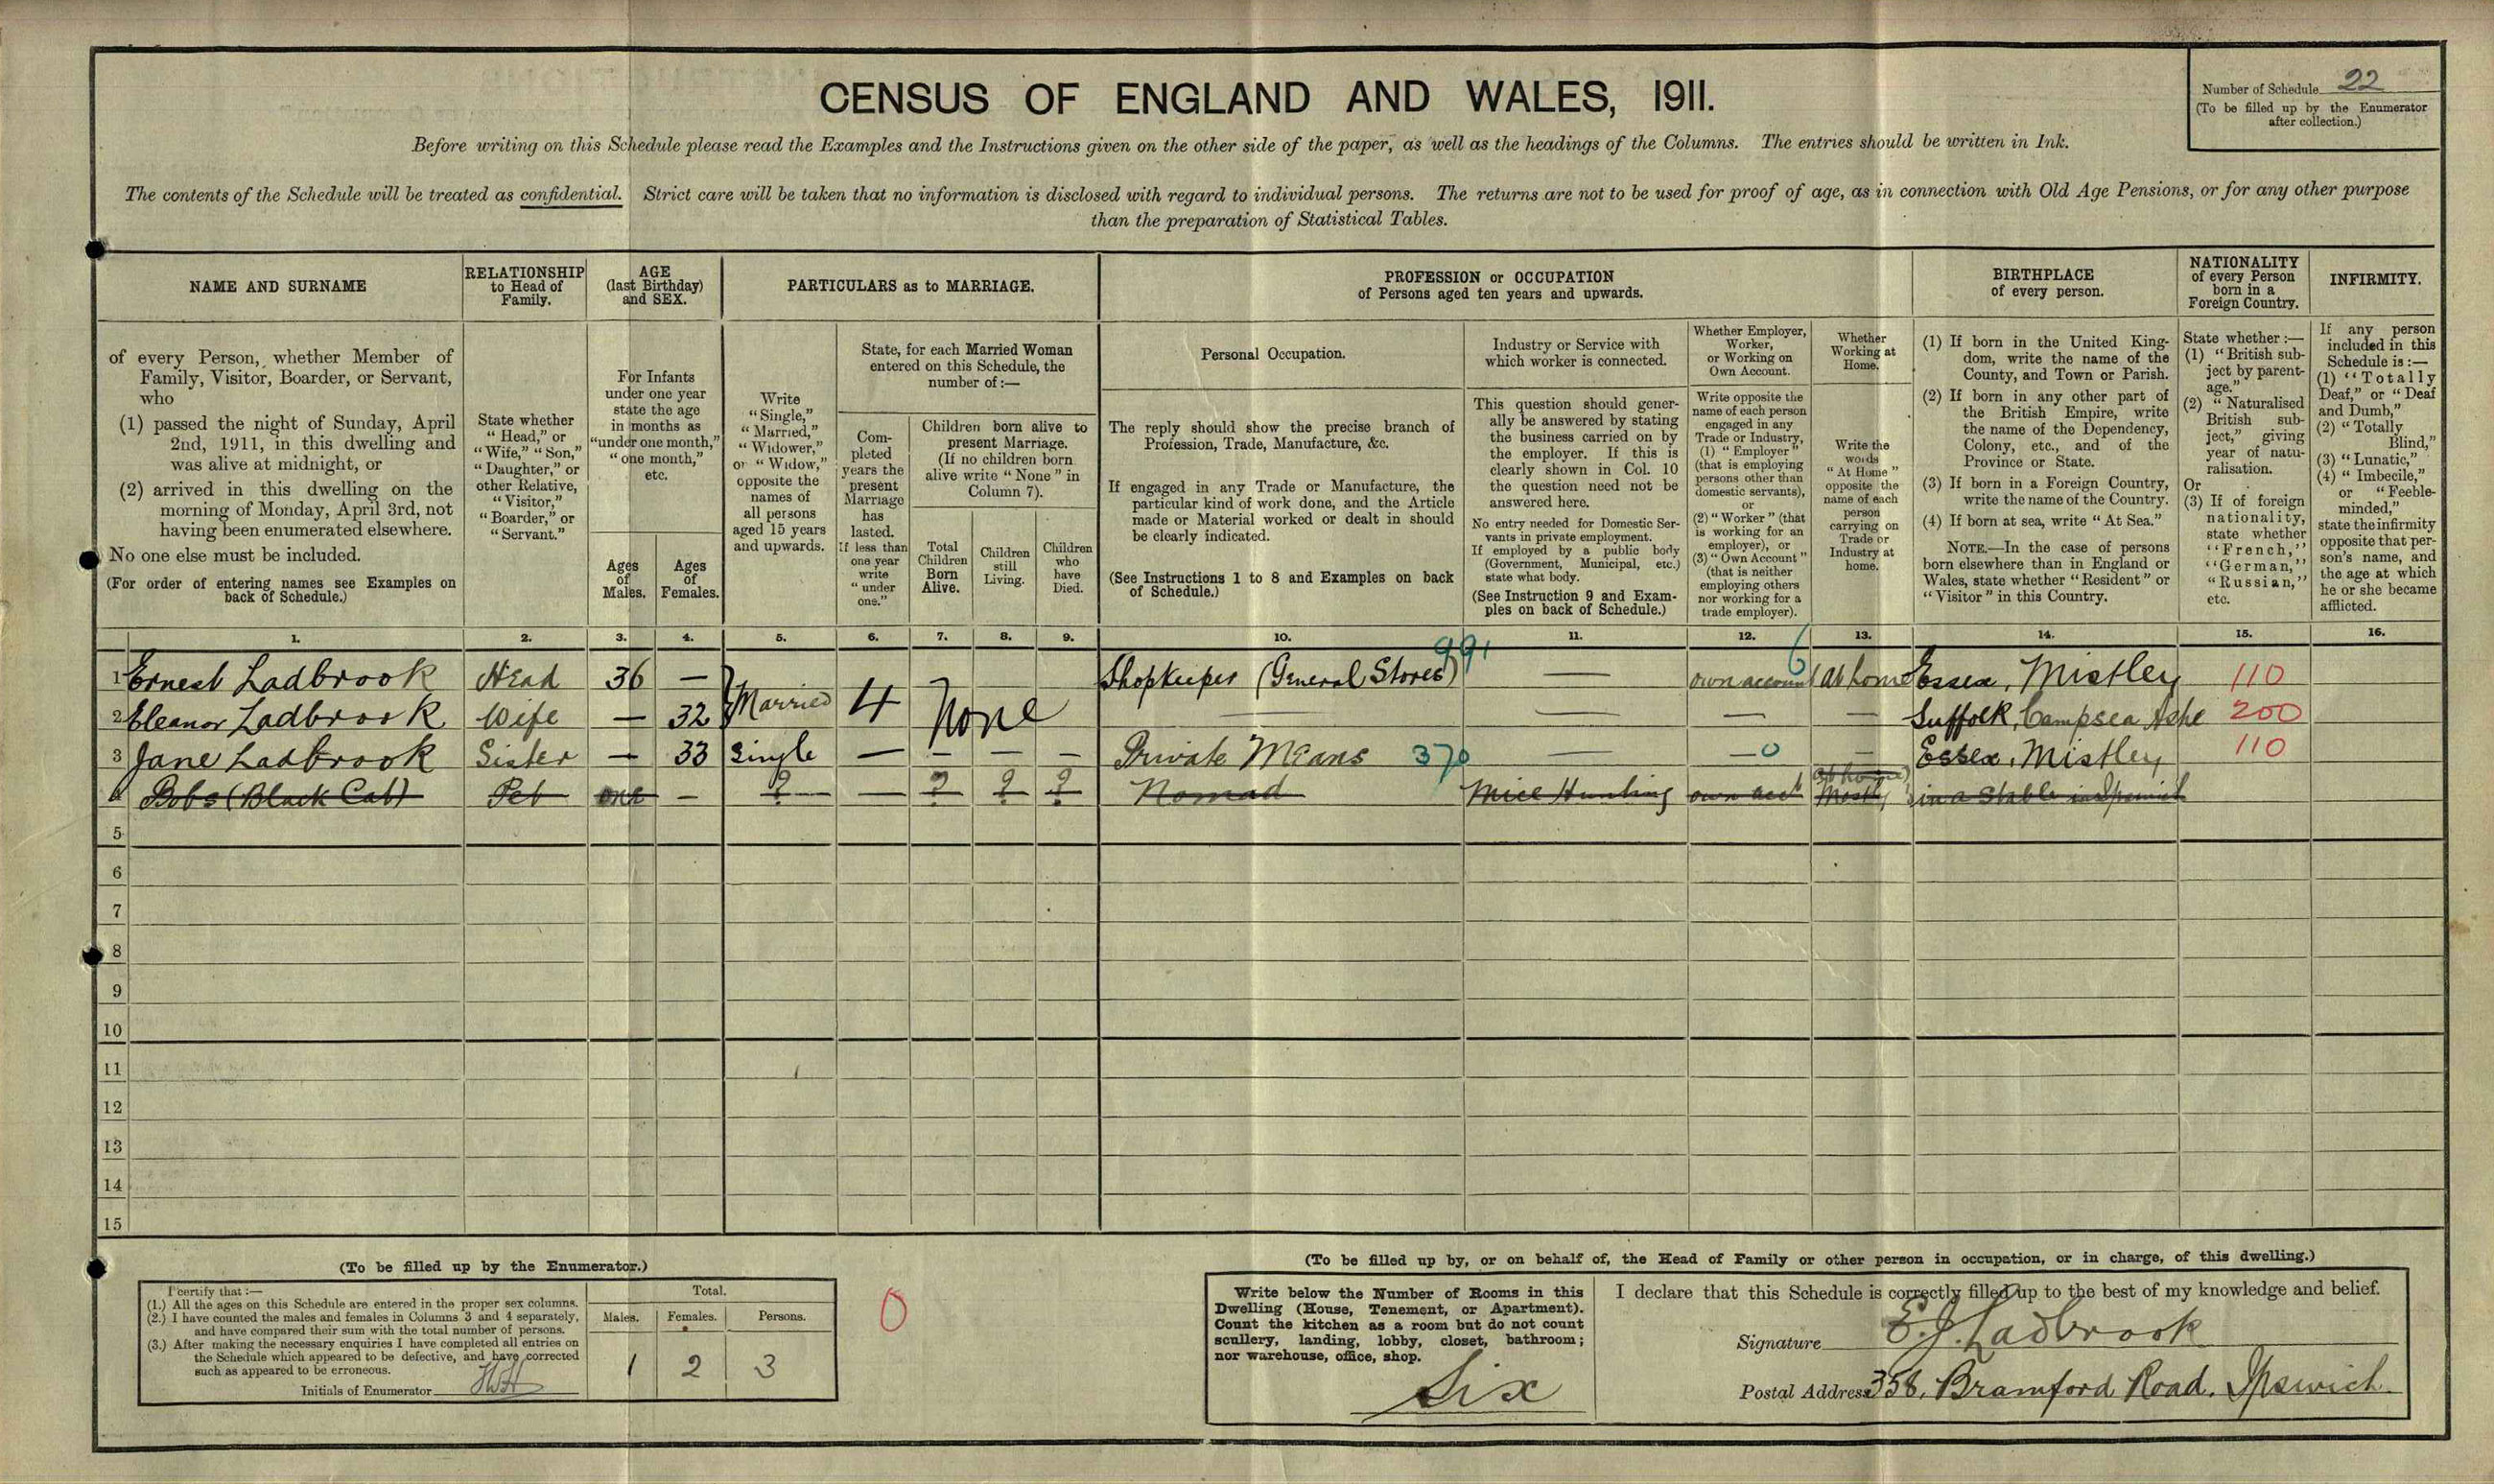 CENSUS OF ENGLAND AND WALES, 1911.
Number of Schedule 22
(To be filled up by the Enumerator
after collection.)
Before writing on this Schedule please read the Examples and the Instructions given on the other side of the paper, as well as the headings of the Columns. The entries should be written in Ink.
The contents of the Schedule will be treated as confidential. Strict care will be taken that no information is disclosed with regard to individual persons. The returns are not to be used for proof of age, as in connection with Old Age Pensions, or for any other purpose
than the preparation of Statistical Tables.
NAME AND SURNAME
of every Person, whether Member of
Family, Visitor, Boarder, or Servant,
who
(1) passed the night of Sunday, April
2nd, 1911, in this dwelling and
was alive at midnight, or
(2) arrived in this dwelling on the
morning of Monday, April 3rd, not
having been enumerated elsewhere.
No one else must be included.
(For order of entering names see Examples on
back of Schedule.)
RELATIONSHIP
to Head of
Family.
State whether
"Head," or
"Wife," "Son,"
"Daughter," or
other Relative,
"Visitor,"
"Boarder," or
"Servant."
AGE
(last Birthday)
and SEX.
For Infants
under one year
state the age
in months as
"under one month,"
"one month,"
etc.
Ages
of
Males.
Ages
of
Females.
PARTICULARS as to MARRIAGE.
Write
"Single,"
"Married,"
"Widower,"
or "Widow,"
opposite the
names of
all persons
aged 15 years
and upwards.
State, for each Married Woman
entered on this Schedule, the
number of:—
Com-
pleted
years the
present
Marriage
has
lasted.
If less than
one year
write
"under
one."
Children born alive to
present Marriage.
(If no children born
alive write "None" in
Column 7).
Total
Children
Born
Alive.
Children
still
Living.
Children
who
have
Died.
PROFESSION or OCCUPATION
of Persons aged ten years and upwards.
Personal Occupation.
The reply should show the precise branch of
Profession, Trade, Manufacture, &c.
If engaged in any Trade or Manufacture, the
particular kind of work done, and the Article
made or Material worked or dealt in should
be clearly indicated.
(See Instructions 1 to 8 and Examples on back
of Schedule.)
Industry or Service with
which worker is connected.
This question should gener-
ally be answered by stating
the business carried on by
the employer. If this is
clearly shown in Col. 10
the question need not be
answered here.
No entry needed for Domestic Ser-
vants in private employment.
If employed by a public body
(Government, Municipal, etc.)
state what body.
(See Instruction 9 and Exam-
ples on back of Schedule.)
Whether Employer,
Worker,
or Working on
Own Account.
Write opposite the
name of each person
engaged in any
Trade or Industry,
(1) "Employer"
(that is employing
persons other than
domestic servants),
or
(2) "Worker" (that
is working for an
employer), or
(3) "Own Account"
(that is neither
employing others
nor working for a
trade employer).
Whether
Working at
Home.
Write the
words
"At Home"
opposite the
name of each
person
carrying on
Trade or
Industry at
home.
BIRTHPLACE
of every person.
(1) If born in the United King-
dom, write the name of the
County, and Town or Parish.
(2) If born in any other part of
the British Empire, write
the name of the Dependency,
Colony, etc., and of the
Province or State.
(3) If born in a Foreign Country,
write the name of the Country.
(4) If born at sea, write "At Sea."
NOTE.—In the case of persons
born elsewhere than in England or
Wales, state whether "Resident" or
"Visitor" in this Country.
NATIONALITY
of every Person
born in a
Foreign Country.
State whether :—
(1) "British sub-
ject by parent-
age."
(2) "Naturalised
British sub-
ject," giving
year of natu-
ralisation.
Or
(3) If of foreign
nationality,
state whether
"French,"
"German,"
"Russian,"
etc.
INFIRMITY.
If any person
included in this
Schedule is :—
(1) "Totally
Deaf," or "Deaf
and Dumb,"
(2) "Totally
Blind,"
(3) "Lunatic,"
(4) "Imbecile,"
or "Feeble-
minded,"
state the infirmity
opposite that per-
son's name, and
the age at which
he or she became
afflicted.
1. 2. 3. 4. 5. 6. 7. 8. 9. 10. 11. 12. 13. 14. 15. 16.
1 Ernest Ladbrook Head 36 — Married Shopkeeper (General Stores) 991 — own account 6 At home Essex, Mistley 110
2 Eleanor Ladbrook Wife — 32 4 None — — — — Suffolk, Campsea Ashe 200
3 Jane Ladbrook Sister — 33 Single — — — — Private Means 370 — —0 — Essex, Mistley 110
4 Bobs (Black Cat) Pet one — ? — ? ? ? Nomad Mice Hunting own acct at home Mostly in a Stable in Ipswich
5
6
7
8
9
10
11
12
13
14
15
(To be filled up by the Enumerator.)
I certify that :—
(1.) All the ages on this Schedule are entered in the proper sex columns.
(2.) I have counted the males and females in Columns 3 and 4 separately,
and have compared their sum with the total number of persons.
(3.) After making the necessary enquiries I have completed all entries on
the Schedule which appeared to be defective, and have corrected
such as appeared to be erroneous.
Initials of Enumerator
Total.
Males. Females. Persons.
1 2 3
0
(To be filled up by, or on behalf of, the Head of Family or other person in occupation, or in charge, of this dwelling.)
Write below the Number of Rooms in this
Dwelling (House, Tenement, or Apartment).
Count the kitchen as a room but do not count
scullery, landing, lobby, closet, bathroom;
nor warehouse, office, shop.
Six
I declare that this Schedule is correctly filled up to the best of my knowledge and belief.
Signature E. J. Ladbrook
Postal Address 358, Bramford Road. Ipswich